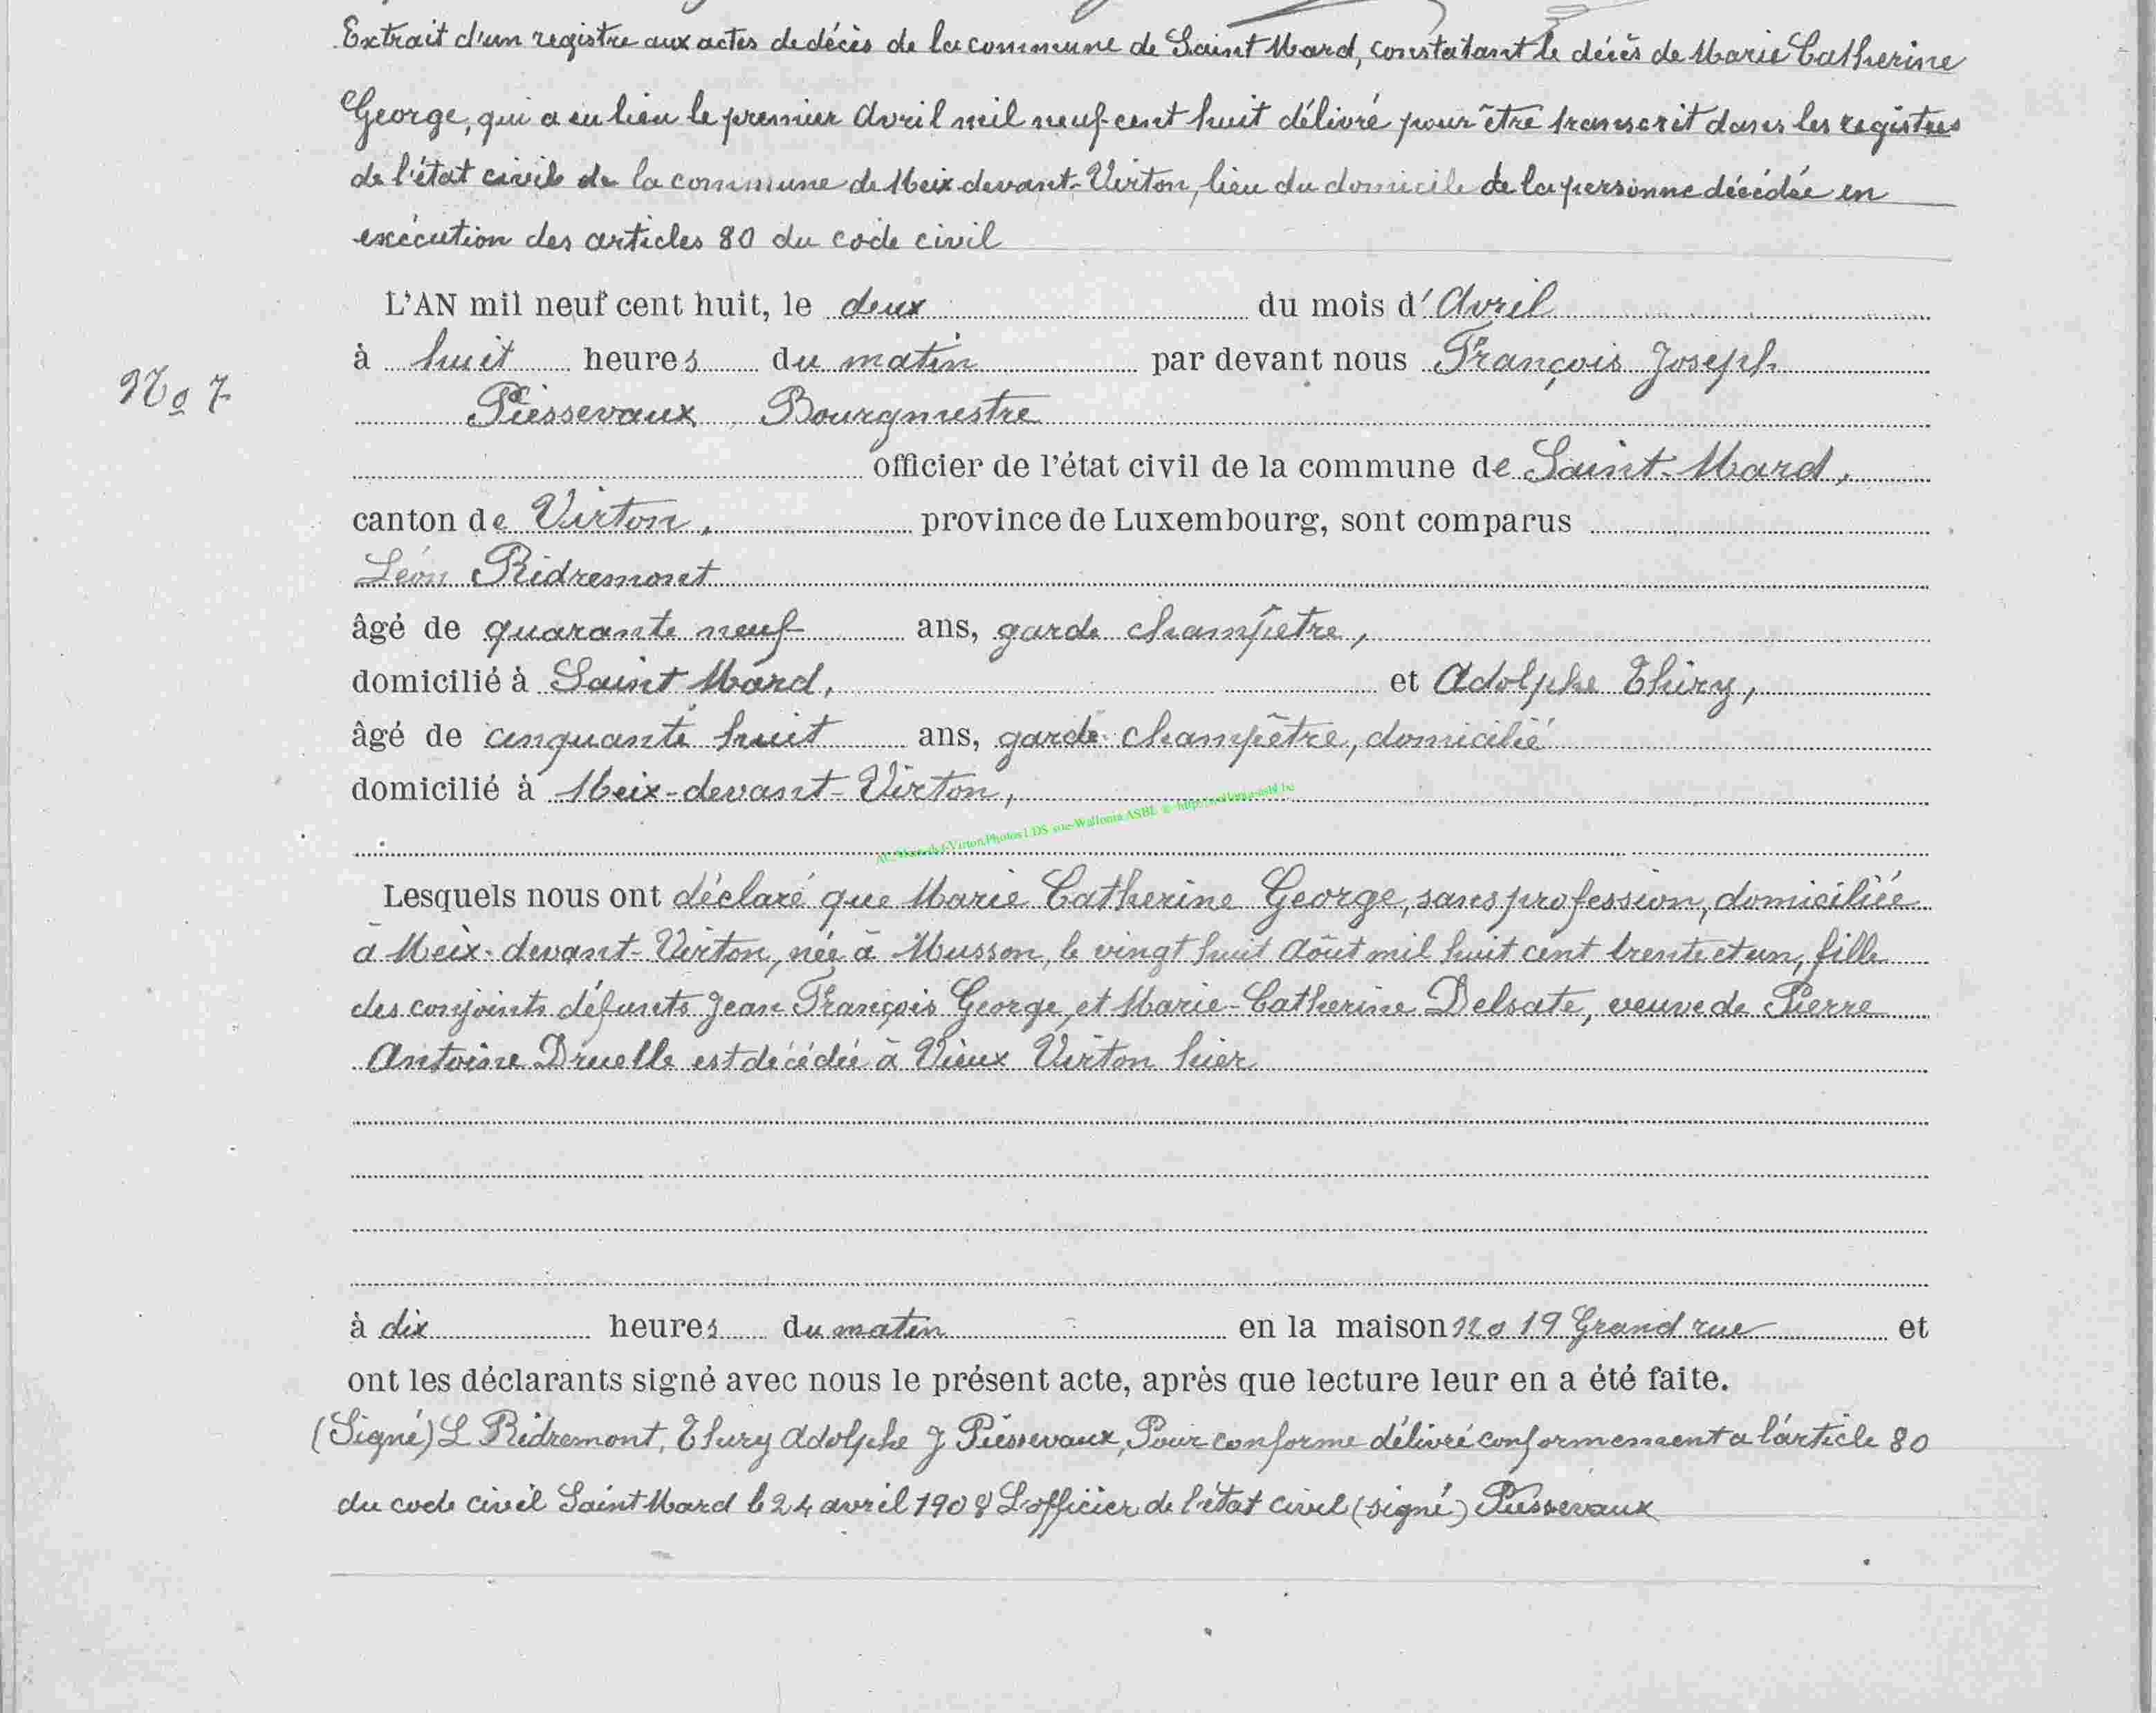 Extrait d'un registre aux actes de décès de la commune de Saint Mard, constatant le décès de Marie Catherine
George, qui a eu lieu le premier Avril mil neuf cent huit délivré pour être transcrit dans les registres
de l'état civil de la commune de Meix-devant-Virton, lieu du domicile de la personne décédée en
exécution des articles 80 du code civil
L'AN mil neuf cent huit, le deux du mois d'Avril
à huit heures du matin par devant nous François Joseph
No 7
Piessevaux Bourgmestre
officier de l'état civil de la commune de Saint-Mard,
canton de Virton, province de Luxembourg, sont comparus
Léon Ridremont
âgé de quarante neuf ans, garde champêtre,
domicilié à Saint Mard, et Adolphe Thiry,
âgé de cinquante huit ans, garde champêtre, domicilié
domicilié à Meix-devant-Virton,
Lesquels nous ont déclaré que Marie Catherine George, sans profession, domiciliée
à Meix-devant-Virton, née à Musson, le vingt huit Août mil huit cent trente et un, fille
des conjoints défunts Jean François George, et Marie-Catherine Delsate, veuve de Pierre
Antoine Druelle est décédée à Vieux Virton hier
à dix heures du matin en la maison no 19 Grand rue et
ont les déclarants signé avec nous le présent acte, après que lecture leur en a été faite.
(Signé) L Ridremont, Thiry Adolphe J Piessevaux, Pour conforme délivré conformement a l'article 80
du code civil Saint Mard le 24 avril 1908 L'officier de l'état civil (signé) Piessevaux